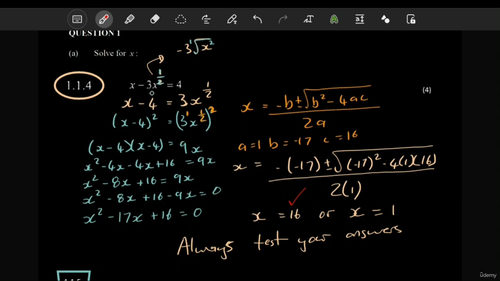 QUESTION 1
(a) Solve for x:
-3¹√x²
1.1.4
x - 3x^(1/2) = 4
(4)
x - 4 = 3x^(1/2)
(x-4)² = (3¹x^(1/2))²
(x-4)(x-4) = 9x
x²-4x-4x+16 = 9x
x²-8x+16 = 9x
x²-8x+16-9x = 0
x²-17x+16 = 0
x = (-b ± √(b²-4ac))/2a
a=1 b=-17 c=16
x = (-(-17) ± √((-17)²-4(1)(16)))/2(1)
x = 16 or x = 1
Always test your answers
ûdemy